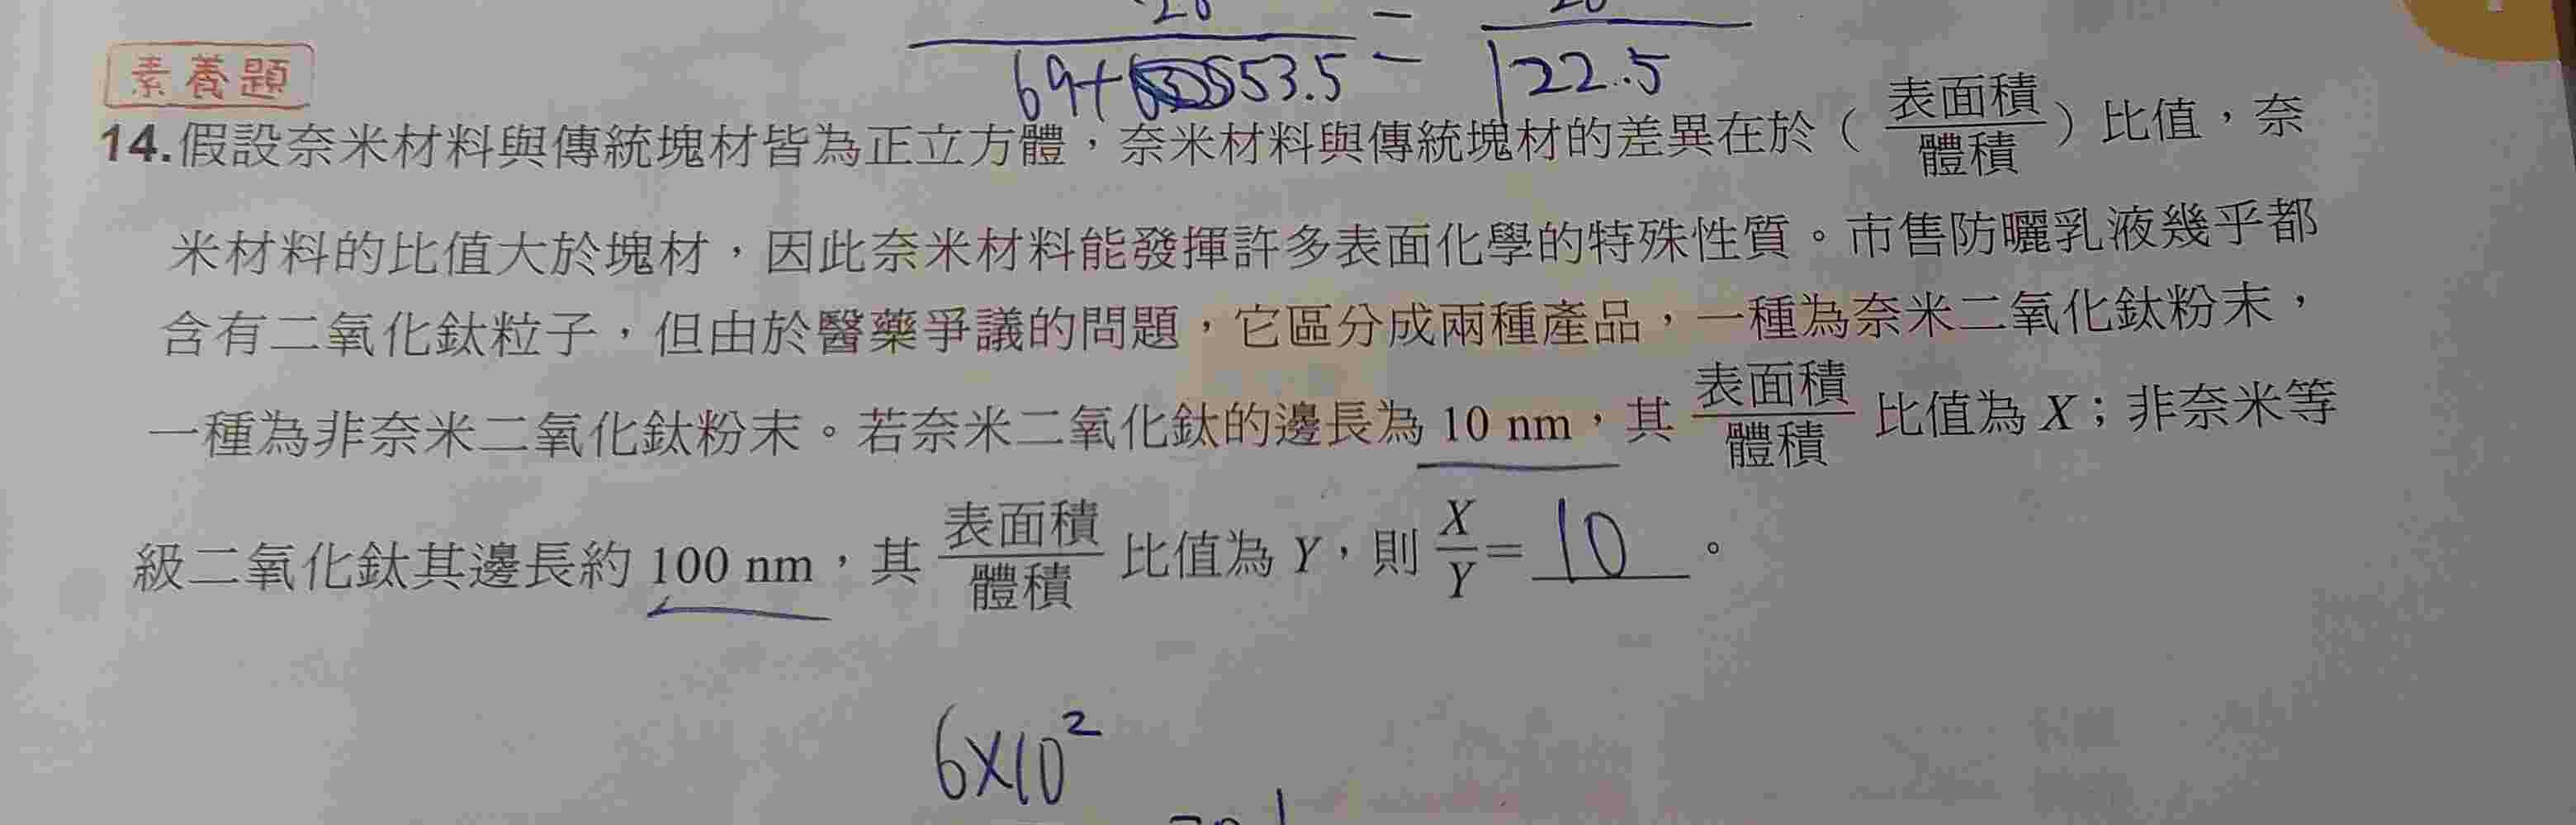 素養題
69+53.5 = 122.5
14.假設奈米材料與傳統塊材皆為正立方體，奈米材料與傳統塊材的差異在於（表面積/體積）比值，奈
米材料的比值大於塊材，因此奈米材料能發揮許多表面化學的特殊性質。市售防曬乳液幾乎都
含有二氧化鈦粒子，但由於醫藥爭議的問題，它區分成兩種產品，一種為奈米二氧化鈦粉末，
一種為非奈米二氧化鈦粉末。若奈米二氧化鈦的邊長為 10 nm，其 表面積/體積 比值為 X；非奈米等
級二氧化鈦其邊長約 100 nm，其 表面積/體積 比值為 Y，則 X/Y = 10 。
6×10²